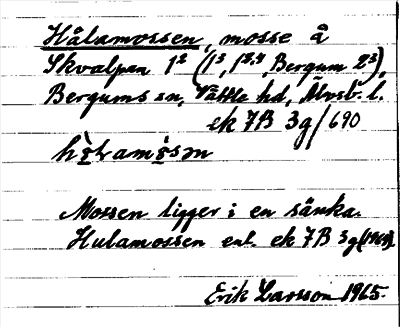 Hålamossen, mosse å
Skvalpan 1² (1³, 1²,⁴, Bergum 2³),
Bergums sn, Vättle hd, Älvsb. l.
ek 7B 3g/690
Mossen ligger i en sänka.
Hulamossen enl. ek 7B 3g (1969).
Erik Larsson 1965.